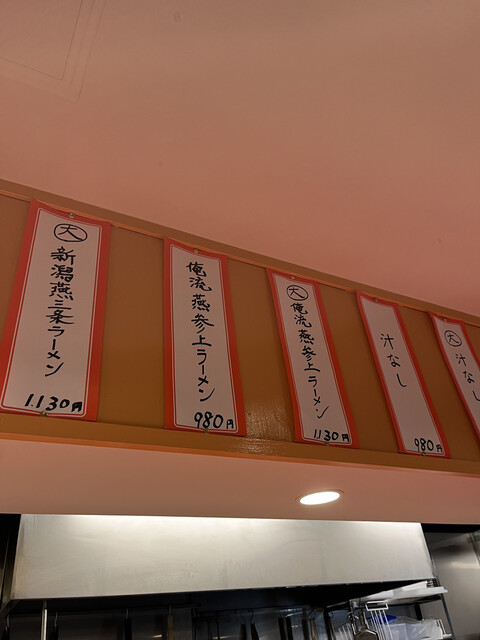 大
新潟燕三条ラーメン
1130円
俺流燕参上ラーメン
980円
大
俺流燕参上ラーメン
1130円
汁なし
980円
大
汁なし